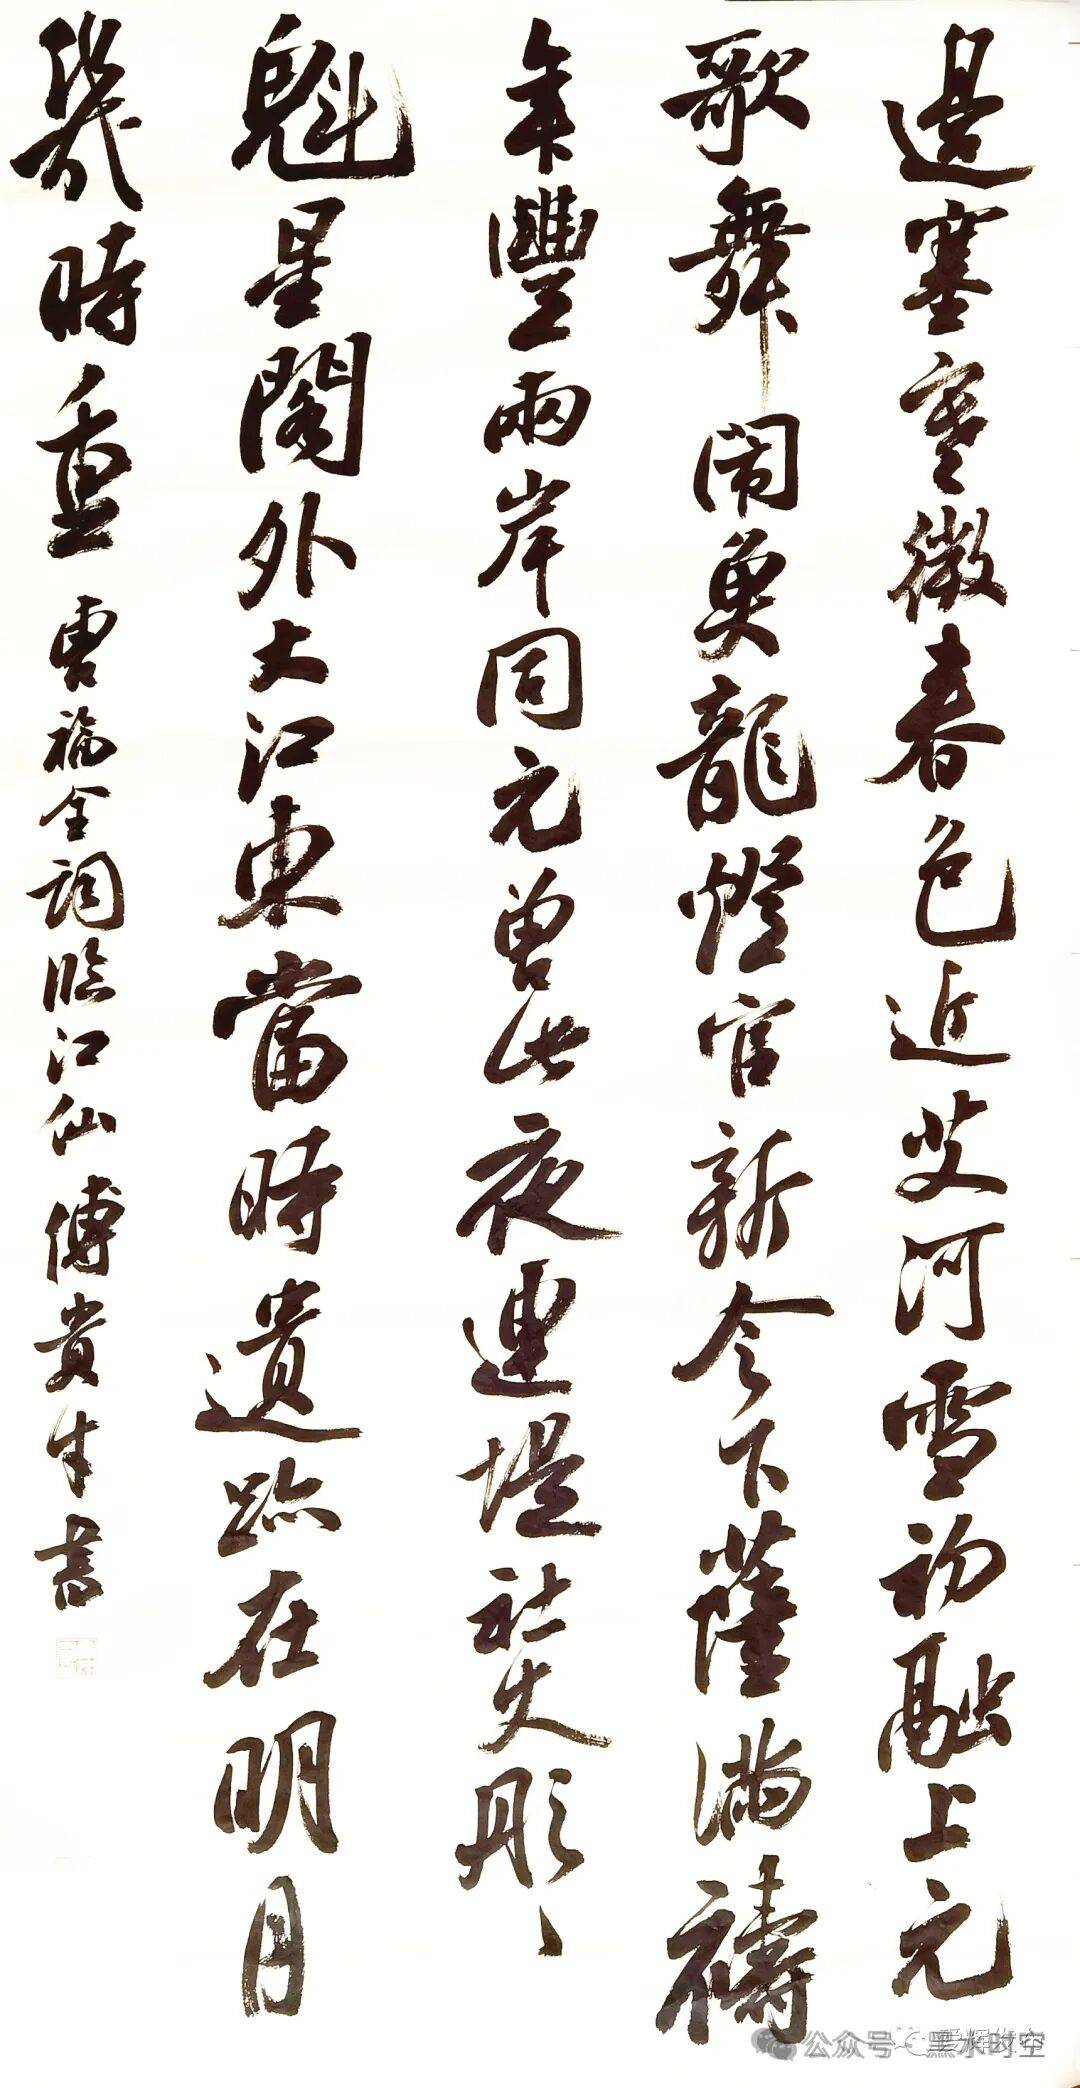 邊塞寒微春色近艾河雪初融上元
歌舞闹魚龍燈官新令下薩滿禱
年豐兩岸同元曾此夜連堤社火彤、
魁星閣外大江東當時遺跡在明月
幾時重 曹福全詞臨江仙 傅貴生書
公众号 黑水时空